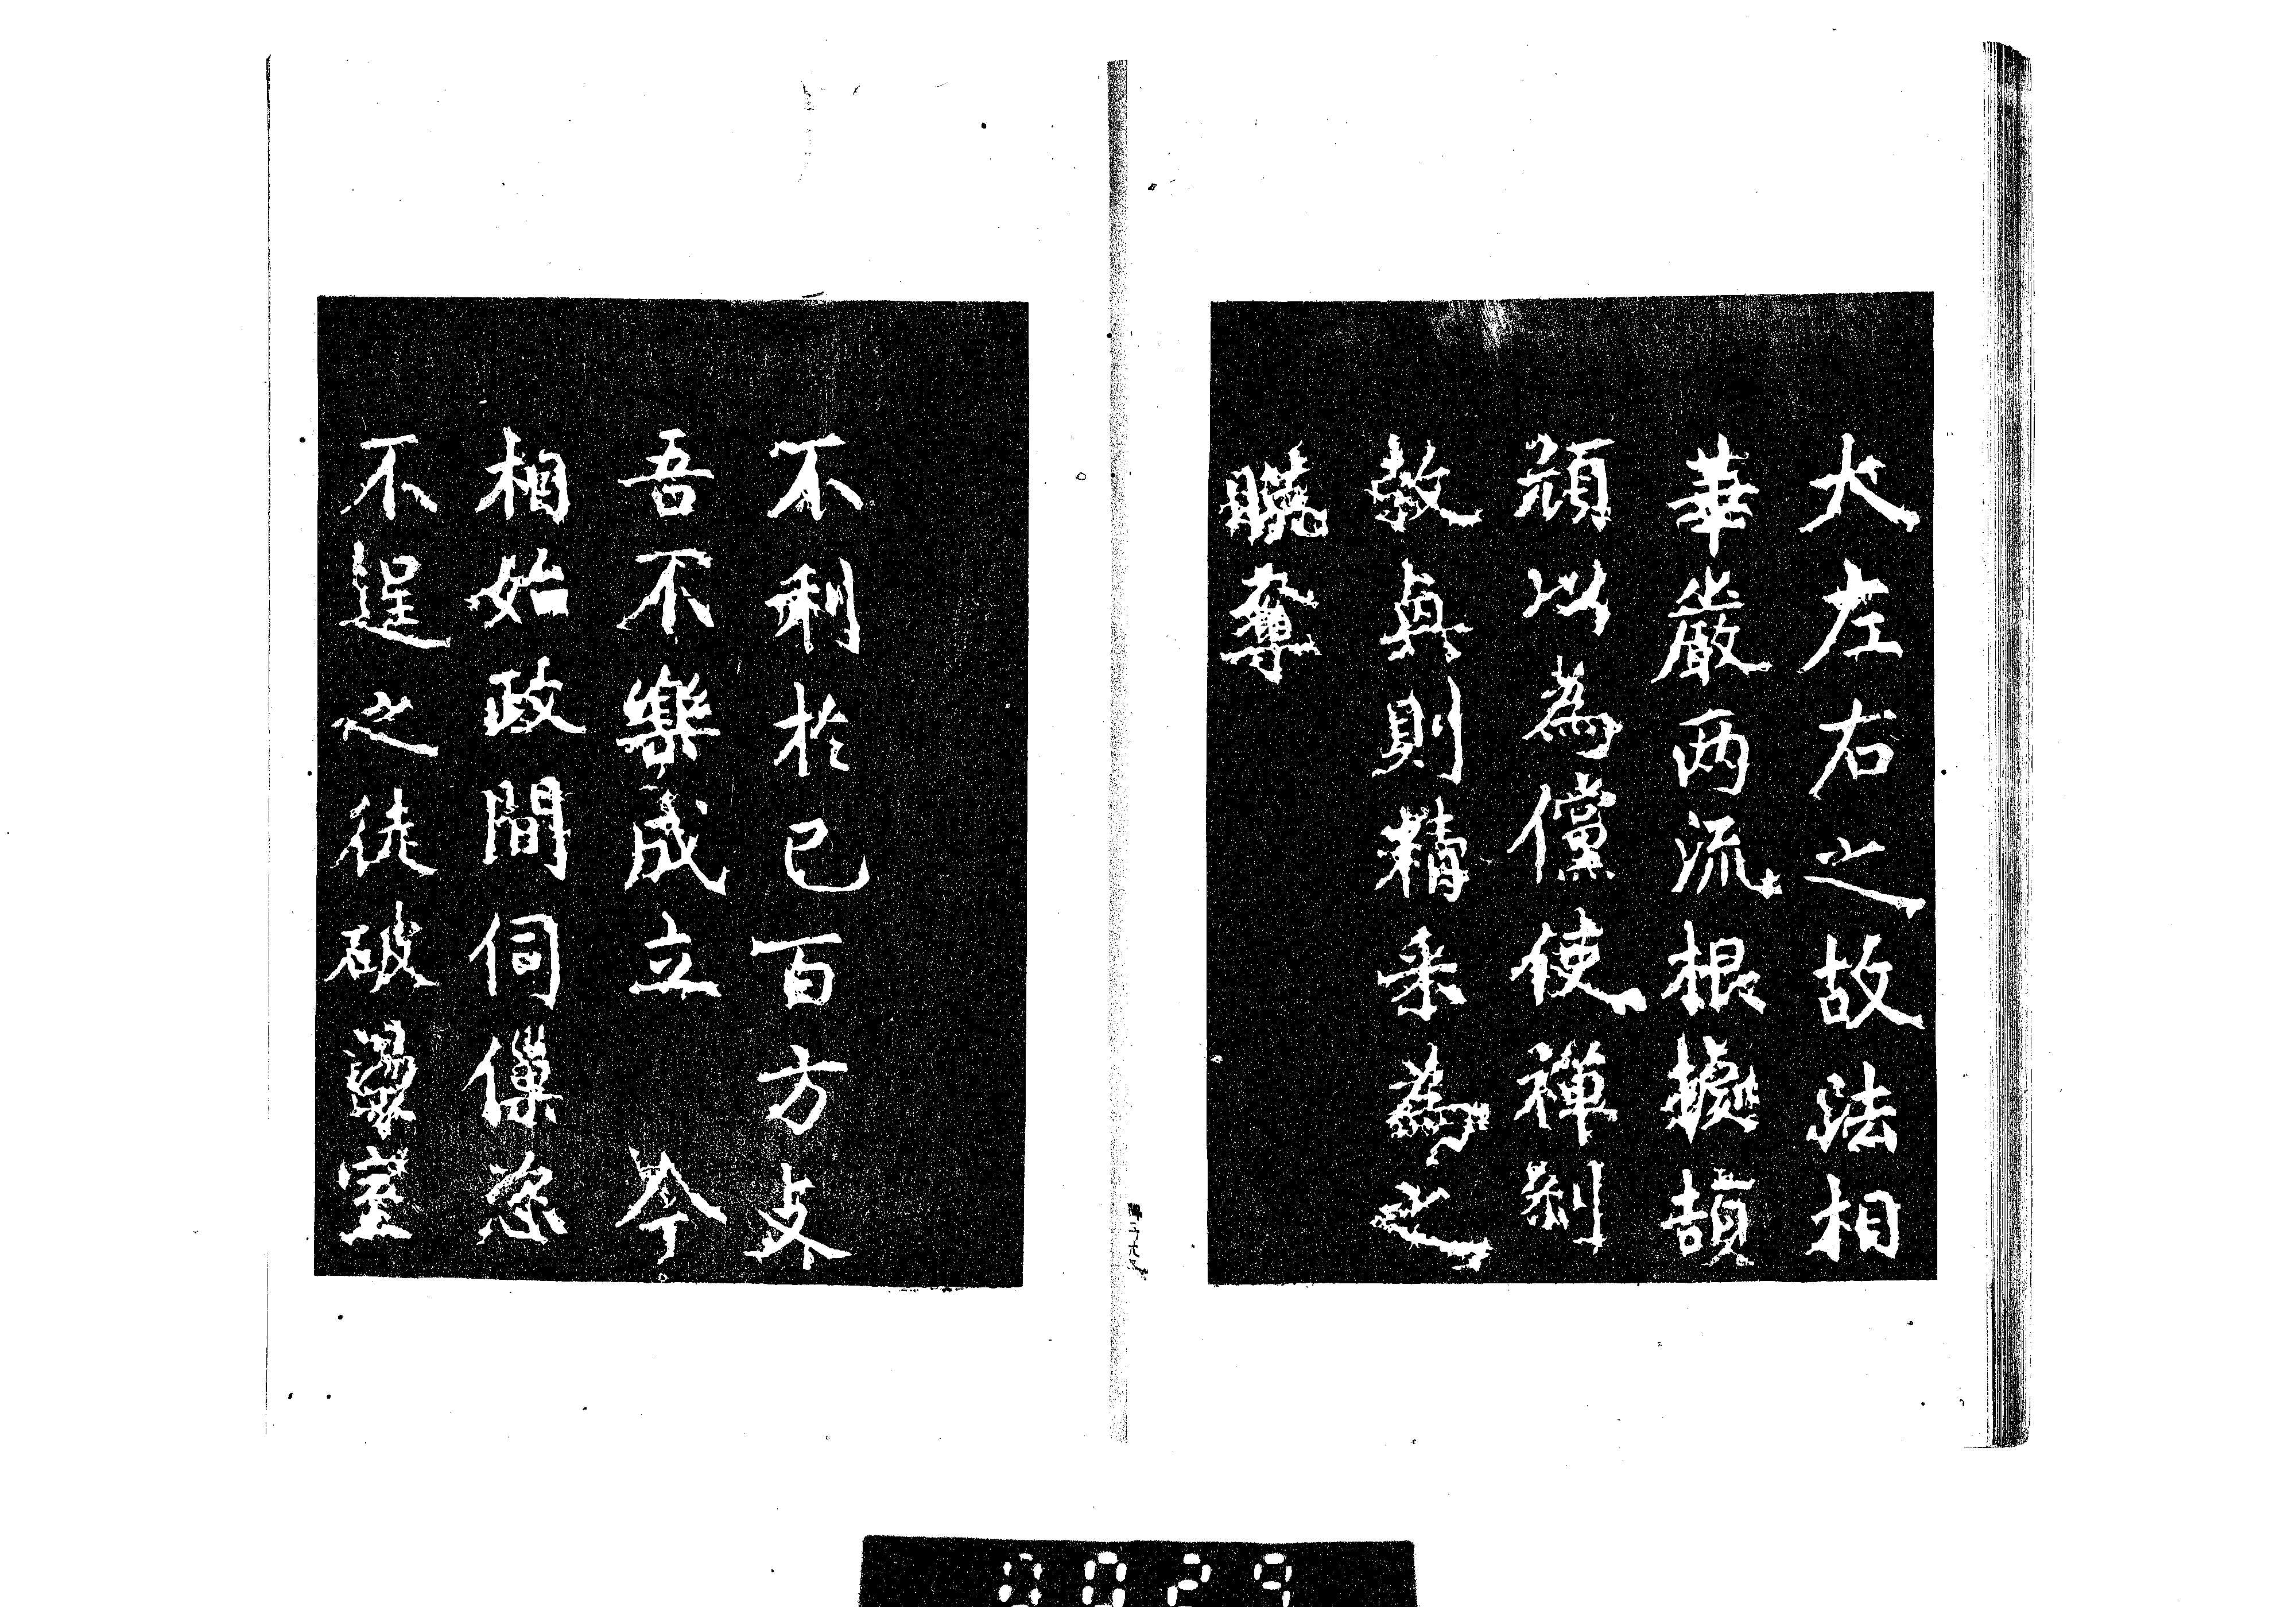 大左右之故法相
華嚴兩流根據頡
頏以為儻使禪剎
教真則精采為之
曉奪
不利於已百方支
吾不樂成立 今
相始政間伺儻恣
不逞之徒破壞室
0029